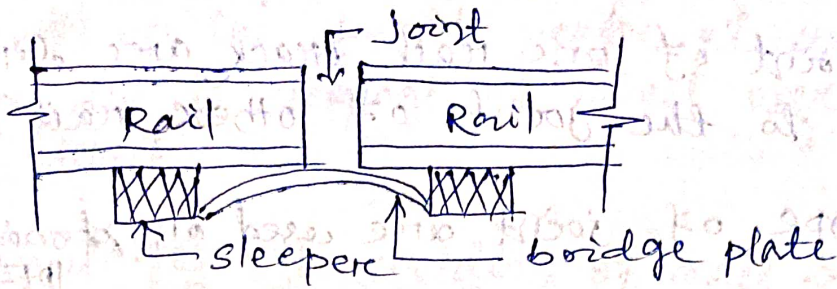 Joint
Rail Rail
sleepere bridge plate